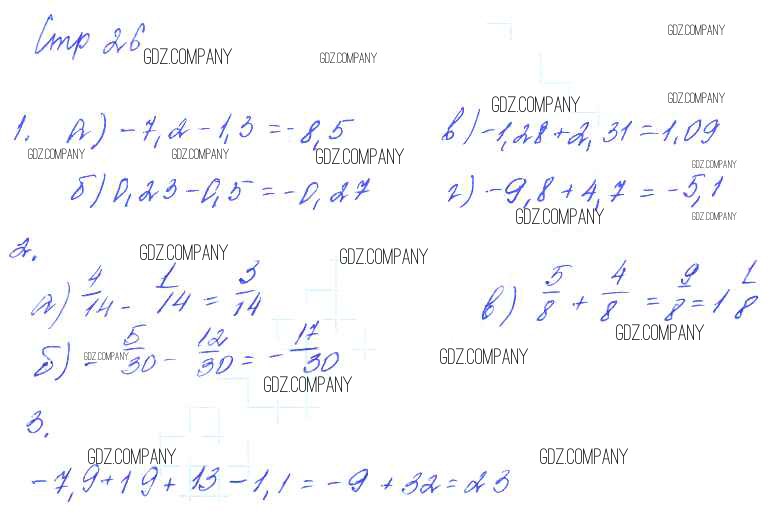 Стр 26
GDZ.COMPANY GDZ.COMPANY GDZ.COMPANY
GDZ.COMPANY GDZ.COMPANY
1. а) -7,2 - 1,3 = -8,5 в) -1,28 + 2,31 = 1,09
GDZ.COMPANY GDZ.COMPANY GDZ.COMPANY GDZ.COMPANY
б) 0,23 - 0,5 = -0,27 г) -9,8 + 4,7 = -5,1
GDZ.COMPANY GDZ.COMPANY
2.
GDZ.COMPANY GDZ.COMPANY
а) 4/14 - 1/14 = 3/14 в) 5/8 + 4/8 = 9/8 = 1 1/8
GDZ.COMPANY
б) - 5/30 - 12/30 = - 17/30
GDZ.COMPANY GDZ.COMPANY
GDZ.COMPANY
3.
GDZ.COMPANY GDZ.COMPANY
-7,9 + 19 + 13 - 1,1 = -9 + 32 = 23